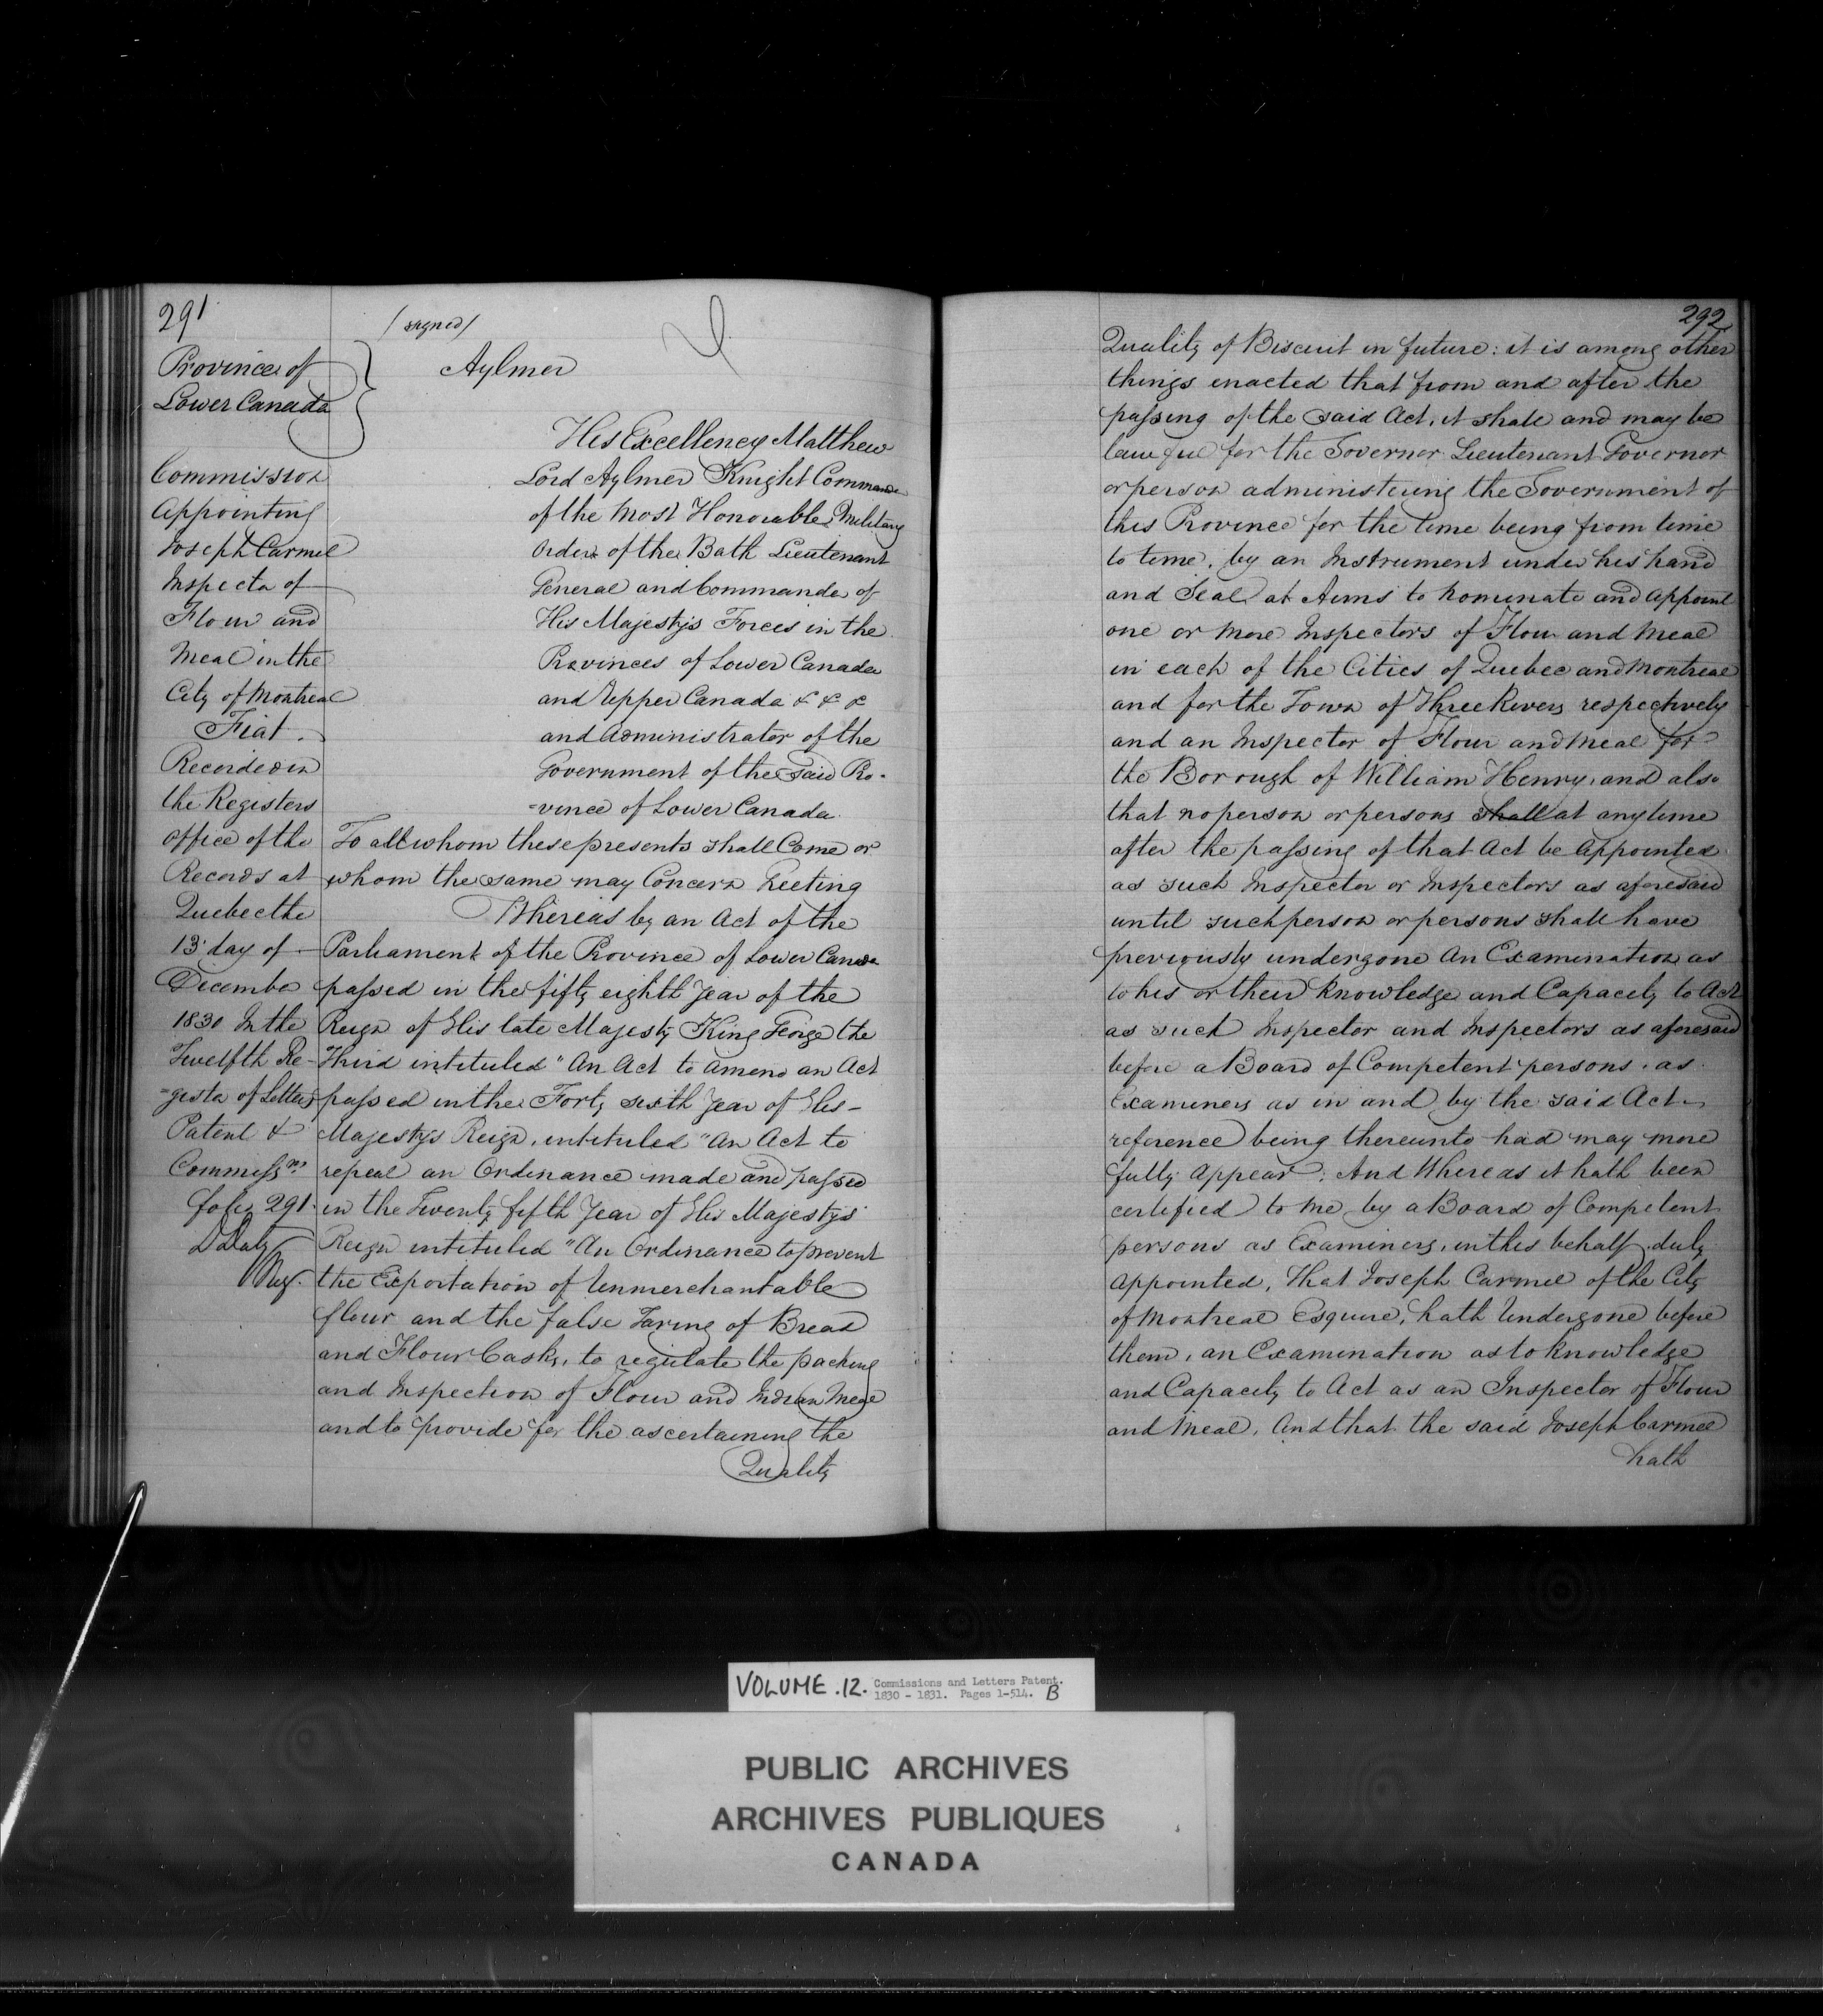 291
(signed)
Province of
Lower Canada
Aylmer
Commission
Appointing
Joseph Carmel
Inspector of
Flour and
Meal in the
City of Montreal
Fiat.
Recorded in
the Registers
office of the
Records at
Quebec the
13 day of
December
1830 In the
Twelfth Re-
=gister of Letters
Patent &
Commissns
folio 291.
D Daly
Reg.
His Excellency Matthew
Lord Aylmer Knight Commander
of the Most Honorable Military
Order of the Bath Lieutenant
General and Commander of
His Majesty's Forces in the
Provinces of Lower Canada
and Upper Canada & & &
and Administrator of the
Government of the said Pro-
=vince of Lower Canada.
To all whom these presents shall Come or
whom the same may Concern Greeting
Whereas by an Act of the
Parliament of the Province of Lower Canada
passed in the fifty eighth Year of the
Reign of His late Majesty King George the
Third intituled "An Act to amend an Act
passed in the Forty sixth Year of His-
Majesty's Reign, intituled "An Act to
repeal an Ordinance made and passed
in the Twenty fifth Year of His Majesty's
Reign intituled "An Ordinance to prevent
the Exportation of Unmerchantable
flour and the false Taring of Bread
and Flour Casks, to regulate the packing
and Inspection of Flour and Indian Meal
and to provide for the ascertaining the
Quality
292
Quality of Biscuit in future: it is among other
things enacted that from and after the
passing of the said Act, it shall and may be
lawful for the Governor Lieutenant Governor
or person administering the Government of
this Province for the time being from time
to time, by an Instrument under his hand
and Seal at Arms to nominate and appoint
one or more Inspectors of Flour and Meal
in each of the Cities of Quebec and Montreal
and for the Town of Three Rivers respectively
and an Inspector of Flour and Meal for
the Borough of William Henry, and also
that no person or persons shall at any time
after the passing of that Act be appointed
as such Inspector or Inspectors as aforesaid
until such person or persons shall have
previously undergone An Examination as
to his or their knowledge and Capacity to Act
as such Inspector and Inspectors as aforesaid
before a Board of Competent persons, as
Examiners as in and by the said Act
reference being thereunto had may more
fully appear; And Whereas it hath been
certified to me by a Board of Competent
persons as Examiners, in this behalf duly
appointed, That Joseph Carmel of the City
of Montreal Esquire, hath Undergone before
them, an Examination as to knowledge
and Capacity to Act as an Inspector of Flour
and Meal, And that the said Joseph Carmel
hath
VOLUME .12. Commissions and Letters Patent.
1830 - 1831. Pages 1-514. B
PUBLIC ARCHIVES
ARCHIVES PUBLIQUES
CANADA